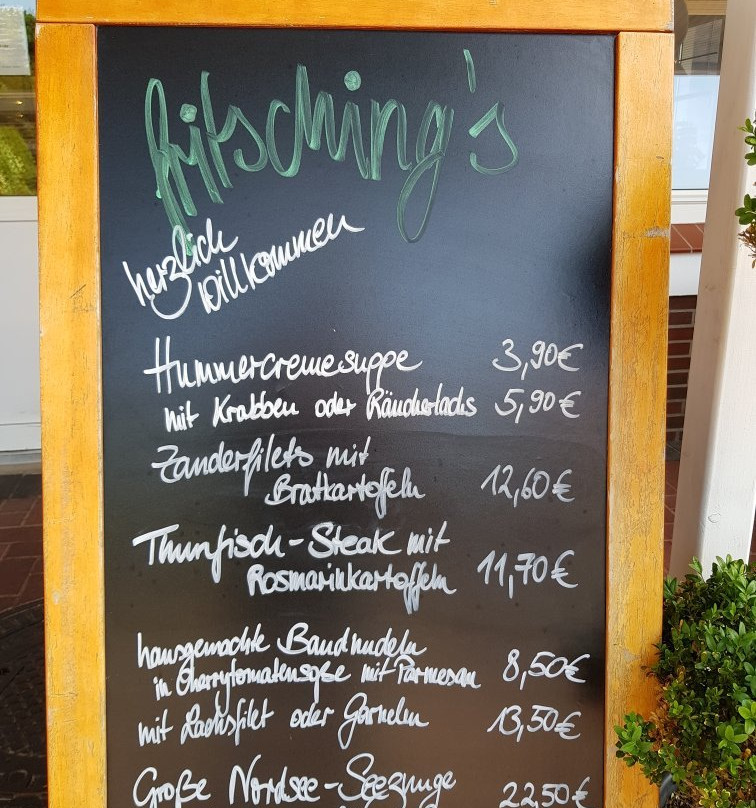 fritsching's
herzlich
willkommen
Hummercremesuppe 3,90€
mit Krabben oder Räucherlachs 5,90€
Zanderfilets mit
Bratkartoffeln 12,60€
Thunfisch-Steak mit
Rosmarinkartoffeln 11,70€
hausgemachte Bandnudeln
in Cherrytomatensoße mit Parmesan 8,50€
mit Lachsfilet oder Garnelen 13,50€
Große Nordsee-Seezunge 22,50€